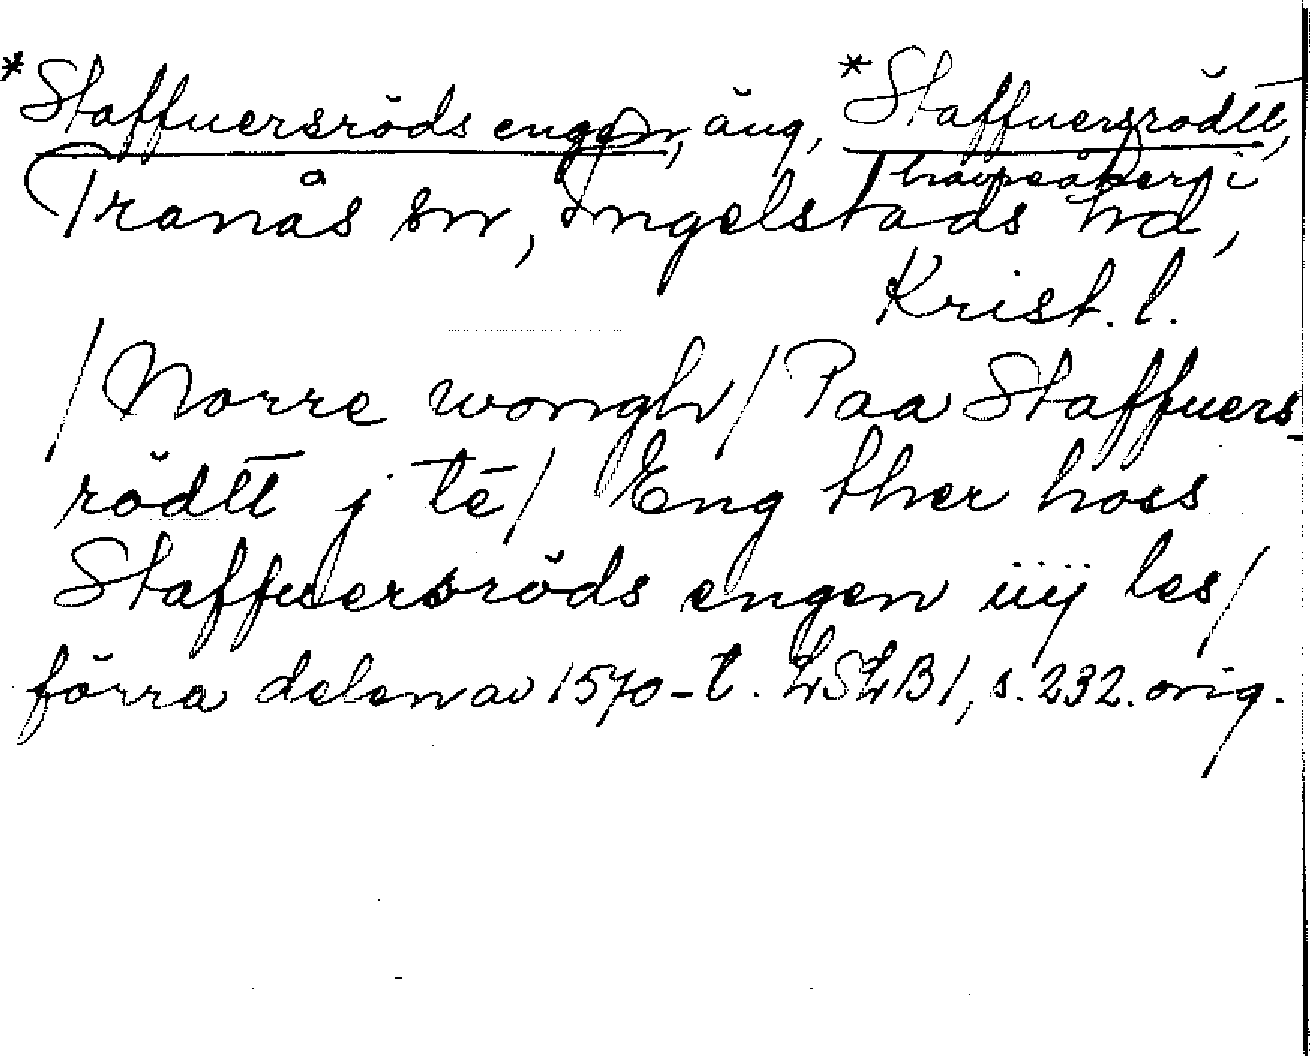 *Staffuersröds engen, äng, *Staffuersrödtt,
Tranås sn, Ingelstads hd,
Krist. l.
/Norre wongh/ Paa Staffuers-
rödtt j te/ Eng ther hoss
Staffuersröds engen iiij les/
förra delen av 1570-t. LSLB1, s. 232. orig.